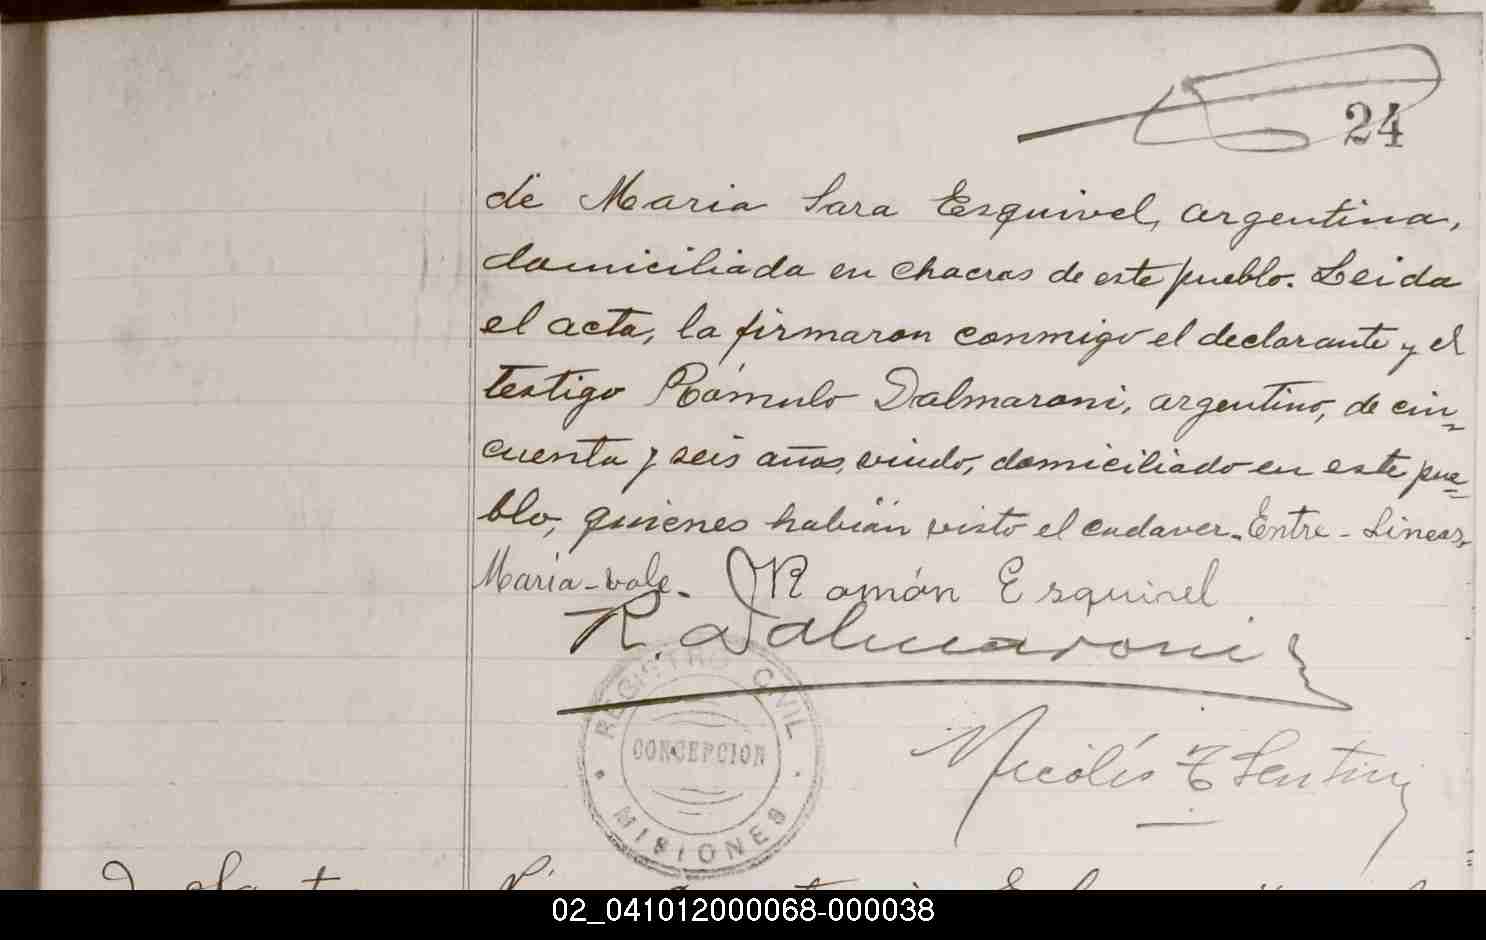 24
de Maria Sara Esquivel, argentina,
domiciliada en chacras de este pueblo. Leida
el acta, la firmaron conmigo el declarante y el
testigo Rómulo Dalmaroni, argentino, de cin-
cuenta y seis años, viudo, domiciliado en este pue-
blo, quienes habian visto el cadaver. Entre-Lineas,
María-vale. Román Esquivel
R. Dalmaroni
REGISTRO CIVIL
CONCEPCION
MISIONES
Nicolás
02_041012000068-000038